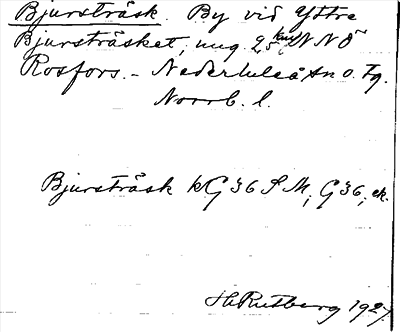 Bjursträsk. By vid Yttre
Bjursträsket, ung. 25 km NNO
Rosfors. – Nederluleå tn o. fg.
Norrb. l.
Bjursträsk kG36 SM; G36; ek.
H Rutberg 1927